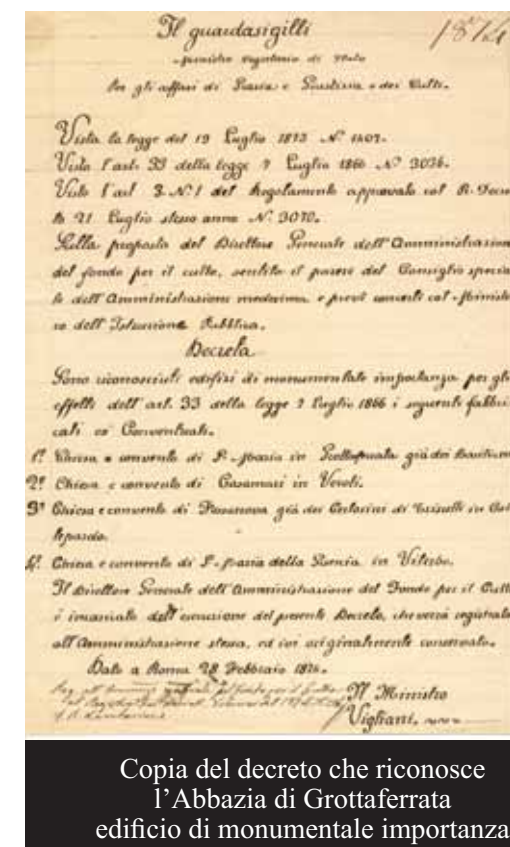 Il guardasigilli
1874
Ministro Segretario di Stato
Per gli affari di Grazia e Giustizia e dei Culti.
Vista la legge del 19 Luglio 1873 Nº 1402.
Visto l'art. 33 della legge 7 Luglio 1866 Nº 3036.
Visto l'art 3. N. 1 del Regolamento approvato col R. Decre
to 21 Luglio stesso anno N. 3070.
Sulla proposta del Direttore Generale dell'Amministrazione
del fondo per il culto, sentito il parere del Consiglio specia
le dell'Amministrazione medesima e previ concerti col Ministe
ro dell'Istruzione Pubblica.
Decreta
Sono riconosciuti edifizi di monumentale importanza per gli
effetti dell'art. 33 della legge 7 Luglio 1866 i seguenti fabbri
cati ex Conventuali.
1º Chiesa e convento di S. Maria in Grottaferrata già dei Basiliani
2º Chiesa e convento di Casamari in Veroli.
3º Chiesa e convento di già dei Certosini di Trisulti in Col
lepardo.
4º Chiesa e convento di S. Maria della Quercia in Viterbo.
Il Direttore Generale dell'Amministrazione del Fondo per il Culto
è incaricato dell'esecuzione del presente Decreto, che verrà registrato
all'Amministrazione stessa, ed ivi originalmente conservato.
Dato a Roma 28 Febbraio 1874.
Il Ministro
Vigliani
Copia del decreto che riconosce
l'Abbazia di Grottaferrata
edificio di monumentale importanza